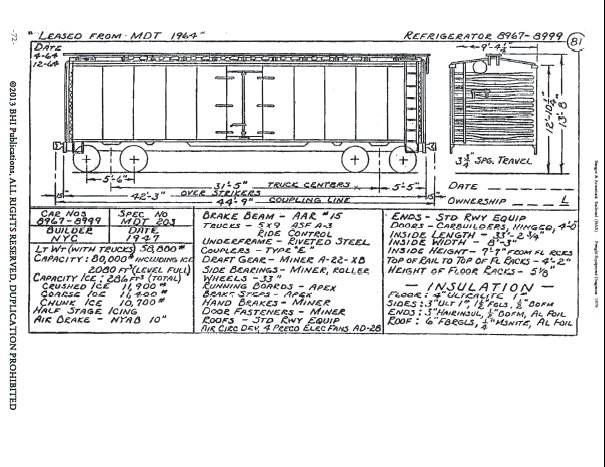 "LEASED FROM MDT 1964"
REFRIGERATOR 8967-8999
81
DATE
4-64
12-64
9'-4¼"
12'-10¾"
13'-8"
3¾" SPG. TRAVEL
5'-6"
31'-5" TRUCK CENTERS
5'-5"
15"
42'-3" OVER STRIKERS
15"
44'-9" COUPLING LINE
DATE
OWNERSHIP L
CAR NOS SPEC NO
8967-8999 MDT 203
BUILDER DATE
NYC 1947
LT WT (WITH TRUCKS) 58,800#
CAPACITY: 80,000# INCLUDING ICE
2080 FT³ (LEVEL FULL)
CAPACITY ICE: 286 FT³ (TOTAL)
CRUSHED ICE 11,900#
COARSE ICE 11,400#
CHUNK ICE 10,700#
HALF STAGE ICING
AIR BRAKE - NYAB 10"
BRAKE BEAM - AAR #15
TRUCKS - 5X9 ASF A-3
RIDE CONTROL
UNDERFRAME - RIVETED STEEL
COUPLERS - TYPE "E"
DRAFT GEAR - MINER A-22-XB
SIDE BEARINGS - MINER, ROLLER
WHEELS - 33"
RUNNING BOARDS - APEX
BRAKE STEPS - APEX
HAND BRAKES - MINER
DOOR FASTENERS - MINER
ROOFS - STD RWY EQUIP
AIR CIRC DEV, 4 PRECO ELEC FANS AD-28
ENDS - STD RWY EQUIP
DOORS - CARBUILDERS, HINGED, 4'-0"
INSIDE LENGTH - 33'-2¾"
INSIDE WIDTH - 8'-3"
INSIDE HEIGHT - 7'-7" FROM FL RCKS
TOP OF RAIL TO TOP OF FL RACKS - 4'-2"
HEIGHT OF FLOOR RACKS - 5⅛"
- INSULATION -
FLOOR: 4" ULTRALITE 1"
SIDES: 3" ULT 1", 1½" FGLS, ½" BDFM
ENDS: 3" HAIRINSUL, ½" BDFM, AL FOIL
ROOF: 6" FBRGLS, ¼" MSNITE, AL FOIL
-72-
©2013 BHI Publications. ALL RIGHTS RESERVED. DUPLICATION PROHIBITED